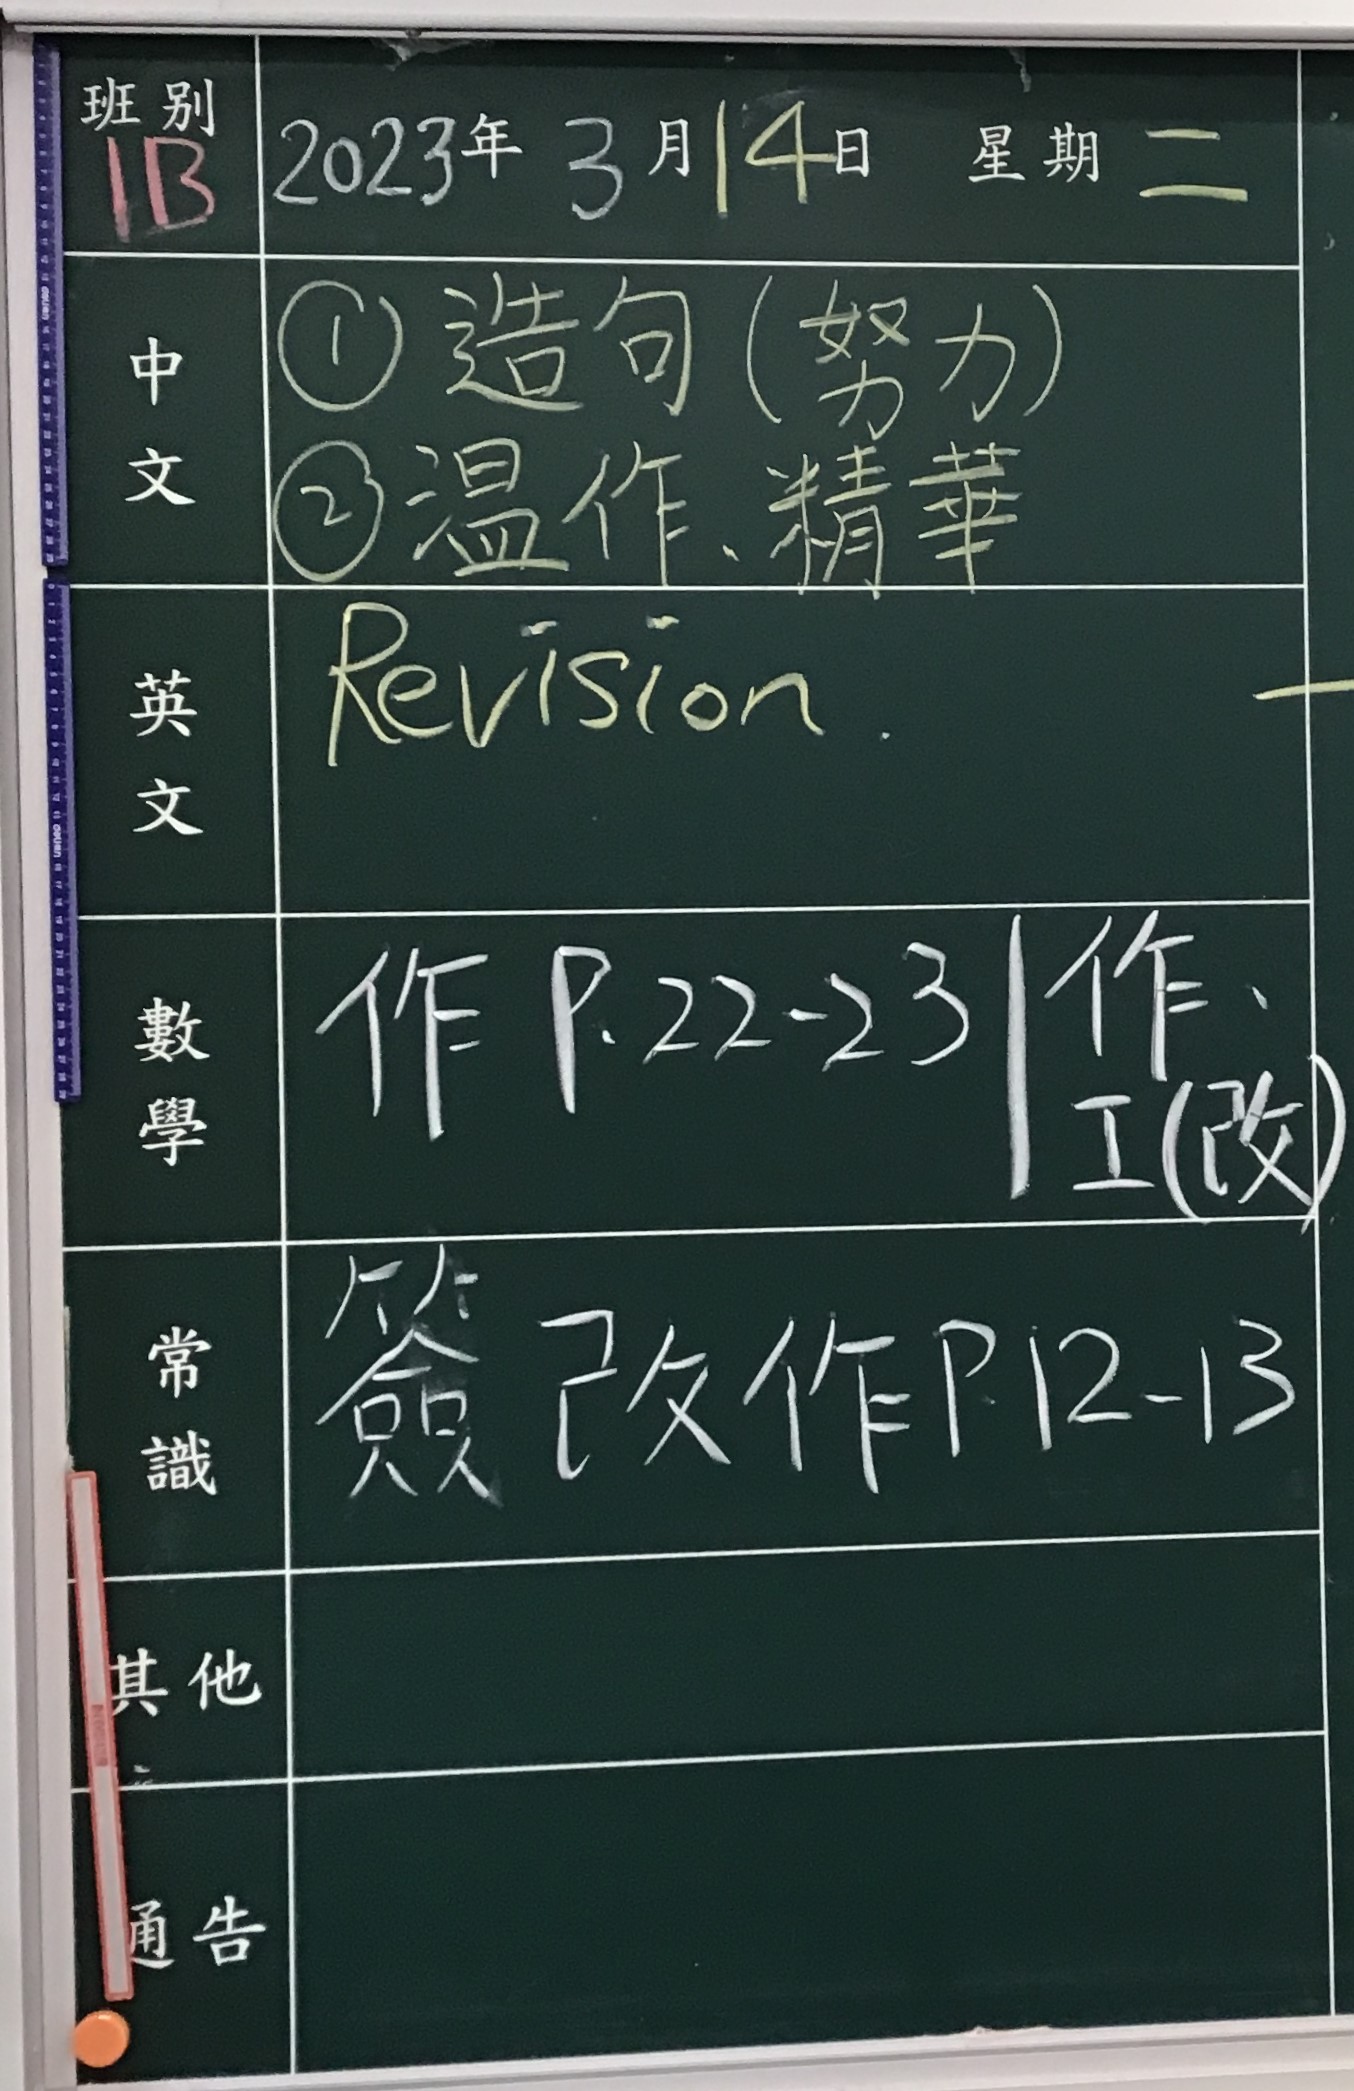 班別 1B
2023年 3月14日 星期 二
中文
① 造句(努力)
② 温作、精華
英文
Revision.
數學
作 P.22-23 | 作、
工(改)
常識
簽 改作P.12-13
其他
通告